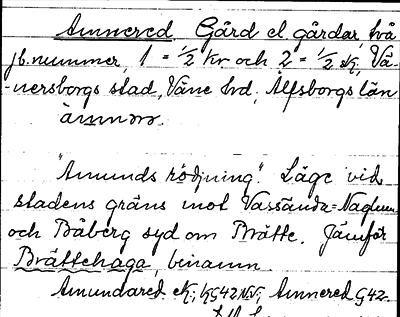 Annered. Gård el. gårdar, två
jb.nummer, 1 = 1/2 kr och 2 = 1/2 sk, Vä-
-nersborgs stad, Väne hd, Älfsborgs län
"Amunds rödjning". Läge vid
stadens gräns mot Vassända-Naglum
och Båberg syd om Brätte. Jämför
Brättehaga, binamn.
Amundared sk, kr G42 NN, Annered G42.